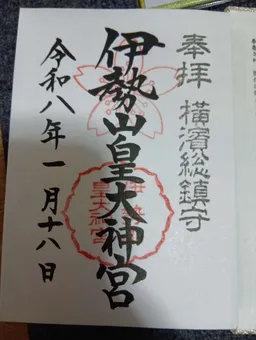 奉拝 横濱総鎮守
伊勢山皇大神宮
令和八年一月十八日
伊勢山
皇大神宮